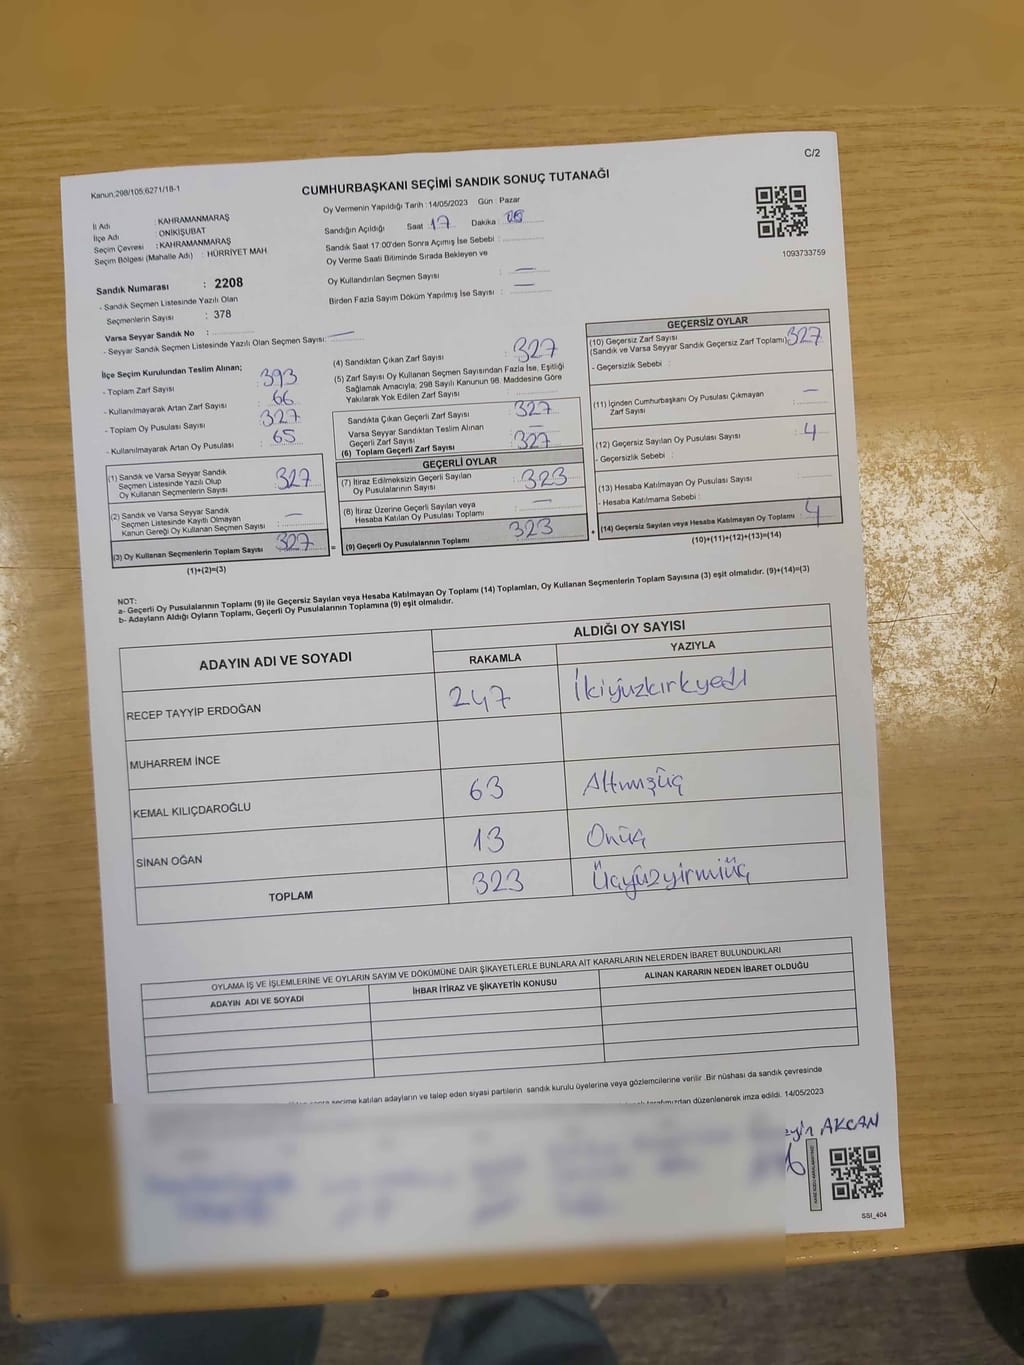 C/2
Kanun:298/105,6271/18-1
CUMHURBAŞKANI SEÇİMİ SANDIK SONUÇ TUTANAĞI
İl Adı : KAHRAMANMARAŞ
İlçe Adı : ONİKİŞUBAT
Seçim Çevresi : KAHRAMANMARAŞ
Seçim Bölgesi (Mahalle Adı) : HÜRRİYET MAH
Sandık Numarası : 2208
- Sandık Seçmen Listesinde Yazılı Olan
Seçmenlerin Sayısı : 378
Varsa Seyyar Sandık No :
- Seyyar Sandık Seçmen Listesinde Yazılı Olan Seçmen Sayısı: —
Oy Vermenin Yapıldığı Tarih : 14/05/2023 Gün : Pazar
Sandığın Açıldığı Saat 17 Dakika :
Sandık Saat 17:00'den Sonra Açımış İse Sebebi :
Oy Verme Saati Bitiminde Sırada Bekleyen ve
Oy Kullandırılan Seçmen Sayısı : —
Birden Fazla Sayım Döküm Yapılmış İse Sayısı : —
1093733759
İlçe Seçim Kurulundan Teslim Alınan;
- Toplam Zarf Sayısı : 393
- Kullanılmayarak Artan Zarf Sayısı : 66
- Toplam Oy Pusulası Sayısı : 327
- Kullanılmayarak Artan Oy Pusulası : 65
(1) Sandık ve Varsa Seyyar Sandık
Seçmen Listesinde Yazılı Olup
Oy Kullanan Seçmenlerin Sayısı : 327
(2) Sandık ve Varsa Seyyar Sandık
Seçmen Listesinde Kayıtlı Olmayan
Kanun Gereği Oy Kullanan Seçmen Sayısı : —
(3) Oy Kullanan Seçmenlerin Toplam Sayısı 327
(1)+(2)=(3)
=
(4) Sandıktan Çıkan Zarf Sayısı : 327
(5) Zarf Sayısı Oy Kullanan Seçmen Sayısından Fazla İse, Eşitliği
Sağlamak Amacıyla; 298 Sayılı Kanunun 98. Maddesine Göre
Yakılarak Yok Edilen Zarf Sayısı :
Sandıkta Çıkan Geçerli Zarf Sayısı : 327
Varsa Seyyar Sandıktan Teslim Alınan
Geçerli Zarf Sayısı : —
(6) Toplam Geçerli Zarf Sayısı : 327
GEÇERLİ OYLAR
(7) İtiraz Edilmeksizin Geçerli Sayılan
Oy Pusulalarının Sayısı : 323
(8) İtiraz Üzerine Geçerli Sayılan veya
Hesaba Katılan Oy Pusulası Toplamı : —
(9) Geçerli Oy Pusulalarının Toplamı 323
+
GEÇERSİZ OYLAR
(10) Geçersiz Zarf Sayısı
(Sandık ve Varsa Seyyar Sandık Geçersiz Zarf Toplamı) 327
- Geçersizlik Sebebi :
(11) İçinden Cumhurbaşkanı Oy Pusulası Çıkmayan
Zarf Sayısı : —
(12) Geçersiz Sayılan Oy Pusulası Sayısı : 4
- Geçersizlik Sebebi :
(13) Hesaba Katılmayan Oy Pusulası Sayısı :
- Hesaba Katılmama Sebebi :
(14) Geçersiz Sayılan veya Hesaba Katılmayan Oy Toplamı : 4
(10)+(11)+(12)+(13)=(14)
NOT:
a- Geçerli Oy Pusulalarının Toplamı (9) ile Geçersiz Sayılan veya Hesaba Katılmayan Oy Toplamı (14) Toplamları, Oy Kullanan Seçmenlerin Toplam Sayısına (3) eşit olmalıdır. (9)+(14)=(3)
b- Adayların Aldığı Oyların Toplamı, Geçerli Oy Pusulalarının Toplamına (9) eşit olmalıdır.
ADAYIN ADI VE SOYADI ALDIĞI OY SAYISI
RAKAMLA YAZIYLA
RECEP TAYYİP ERDOĞAN 247 İkiyüzkırkyedi
MUHARREM İNCE
KEMAL KILIÇDAROĞLU 63 Altmışüç
SİNAN OĞAN 13 Onüç
TOPLAM 323 Üçyüzyirmiüç
OYLAMA İŞ VE İŞLEMLERİNE VE OYLARIN SAYIM VE DÖKÜMÜNE DAİR ŞİKAYETLERLE BUNLARA AİT KARARLARIN NELERDEN İBARET BULUNDUKLARI
ADAYIN ADI VE SOYADI İHBAR İTİRAZ VE ŞİKAYETİN KONUSU ALINAN KARARIN NEDEN İBARET OLDUĞU
seçime katılan adayların ve talep eden siyasi partilerin sandık kurulu üyelerine veya gözlemcilerine verilir .Bir nüshası da sandık çevresinde
tarafımızdan düzenlenerek imza edildi. 14/05/2023
AKCAN
SSI_404